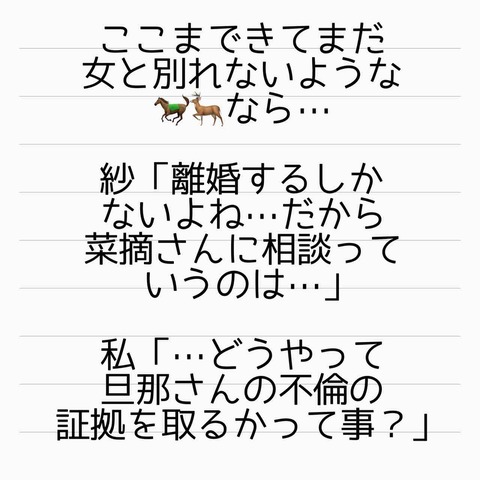 ここまできてまだ
女と別れないような
🐎🦌なら…
紗「離婚するしか
ないよね…だから
菜摘さんに相談って
いうのは…」
私「…どうやって
旦那さんの不倫の
証拠を取るかって事？」